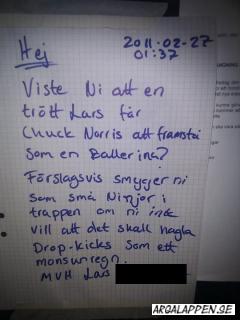 Hej
2011-02-27
01:37
Viste Ni att en
trött Lars får
Chuck Norris att framstå
som en Ballerina?
Förslagsvis smyger ni
som små Ninjor i
trappen om ni inte
vill att det skall hagla
Drop-kicks som ett
monsunregn.
MVH Lars
ARGALAPPEN.SE